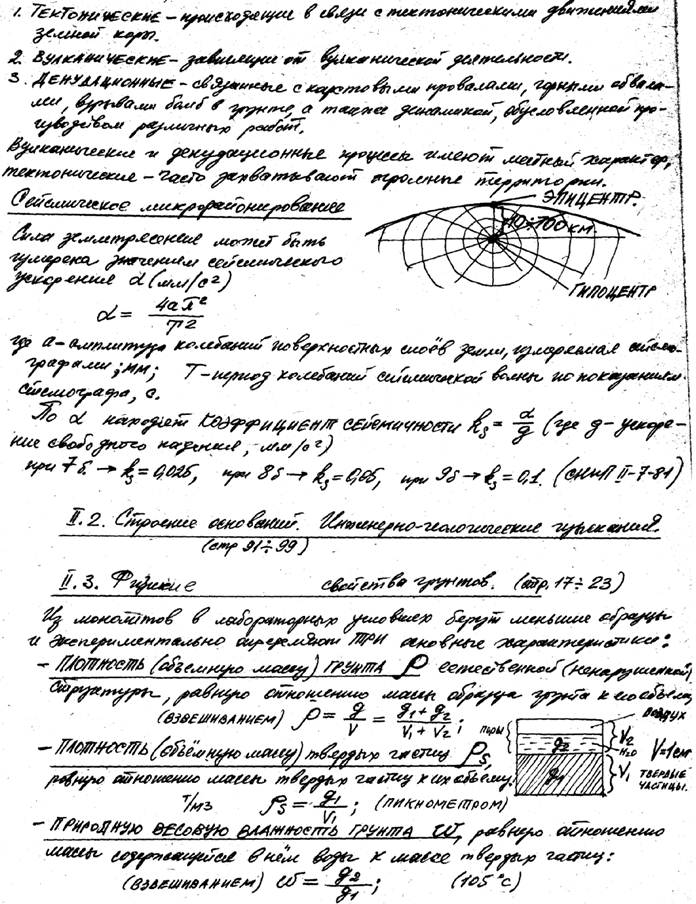 1. ТЕКТОНИЧЕСКИЕ – происходящие в связи с тектоническими движениями
земной коры.
2. ВУЛКАНИЧЕСКИЕ – зависящие от вулканической деятельности.
3. ДЕНУДАЦИОННЫЕ – связанные с карстовыми провалами, горными обвала-
ми, взрывами бомб в грунте, а также динамикой, обусловленной про-
изводством различных работ.
Вулканические и денудационные процессы имеют местный характер,
тектонические – часто захватывают огромные территории.
Сейсмическое микрорайонирование
ЭПИЦЕНТР.
10÷700 км.
ГИПОЦЕНТР
Сила землетрясения может быть
измерена значением сейсмического
ускорения α (мм/с²)
α = 4aπ²/T²
где а – амплитуда колебаний поверхностных слоёв земли, измеряемая сейсмо-
графами, мм; Т – период колебаний сейсмической волны по показаниям
сейсмографа, с.
По α находят КОЭФФИЦИЕНТ СЕЙСМИЧНОСТИ ks = α/g (где g – ускоре-
ние свободного падения, мм/с²)
при 7б. → ks = 0,025, при 8б → ks = 0,05, при 9б → ks = 0,1. (СНиП II-7-81)
II.2. Строение оснований. Инженерно-геологические изыскания.
(стр 91÷99)
II.3. Физические свойства грунтов. (стр. 17÷23)
Из монолитов в лабораторных условиях берут меньшие образцы
и экспериментально определяют ТРИ основные характеристики:
– ПЛОТНОСТЬ (объемную массу) ГРУНТА ρ естественной (ненарушенной)
структуры, равную отношению массы образца грунта к его объему
(ВЗВЕШИВАНИЕМ) ρ = g/V = (g1 + g2)/(V1 + V2);
воздух
поры
g2
V2
H2O
V=1см³
g1
V1
ТВЕРДЫЕ
ЧАСТИЦЫ.
– ПЛОТНОСТЬ (объёмную массу) твердых частиц ρs,
равную отношению массы твердых частиц к их объему.
т/м3 ρs = g1/V1; (ПИКНОМЕТРОМ)
– ПРИРОДНУЮ ВЕСОВУЮ ВЛАЖНОСТЬ ГРУНТА W, равную отношению
массы содержащейся в нём воды к массе твердых частиц:
(ВЗВЕШИВАНИЕМ) W = g2/g1; (105°С)